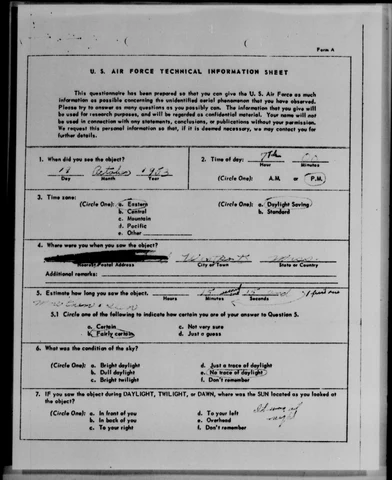 Form A
U. S. AIR FORCE TECHNICAL INFORMATION SHEET
This questionnaire has been prepared so that you can give the U. S. Air Force as much
information as possible concerning the unidentified aerial phenomenon that you have observed.
Please try to answer as many questions as you possibly can. The information that you give will
be used for research purposes, and will be regarded as confidential material. Your name will not
be used in connection with any statements, conclusions, or publications without your permission.
We request this personal information so that, if it is deemed necessary, we may contact you for
further details.
1. When did you see the object?
October
Day Month Year
2. Time of day:
Hour Minutes
(Circle One): A.M. or P.M.
3. Time zone:
(Circle One): a. Eastern
b. Central
c. Mountain
d. Pacific
e. Other
(Circle One): a. Daylight Saving
b. Standard
4. Where were you when you saw the object?
Nearest Postal Address City or Town State or Country
Additional remarks:
5. Estimate how long you saw the object.
Hours Minutes Seconds
5.1 Circle one of the following to indicate how certain you are of your answer to Question 5.
a. Certain c. Not very sure
b. Fairly certain d. Just a guess
6. What was the condition of the sky?
(Circle One): a. Bright daylight d. Just a trace of daylight
b. Dull daylight e. No trace of daylight
c. Bright twilight f. Don't remember
7. IF you saw the object during DAYLIGHT, TWILIGHT, or DAWN, where was the SUN located as you looked at
the object?
(Circle One): a. In front of you d. To your left
b. In back of you e. Overhead
c. To your right f. Don't remember